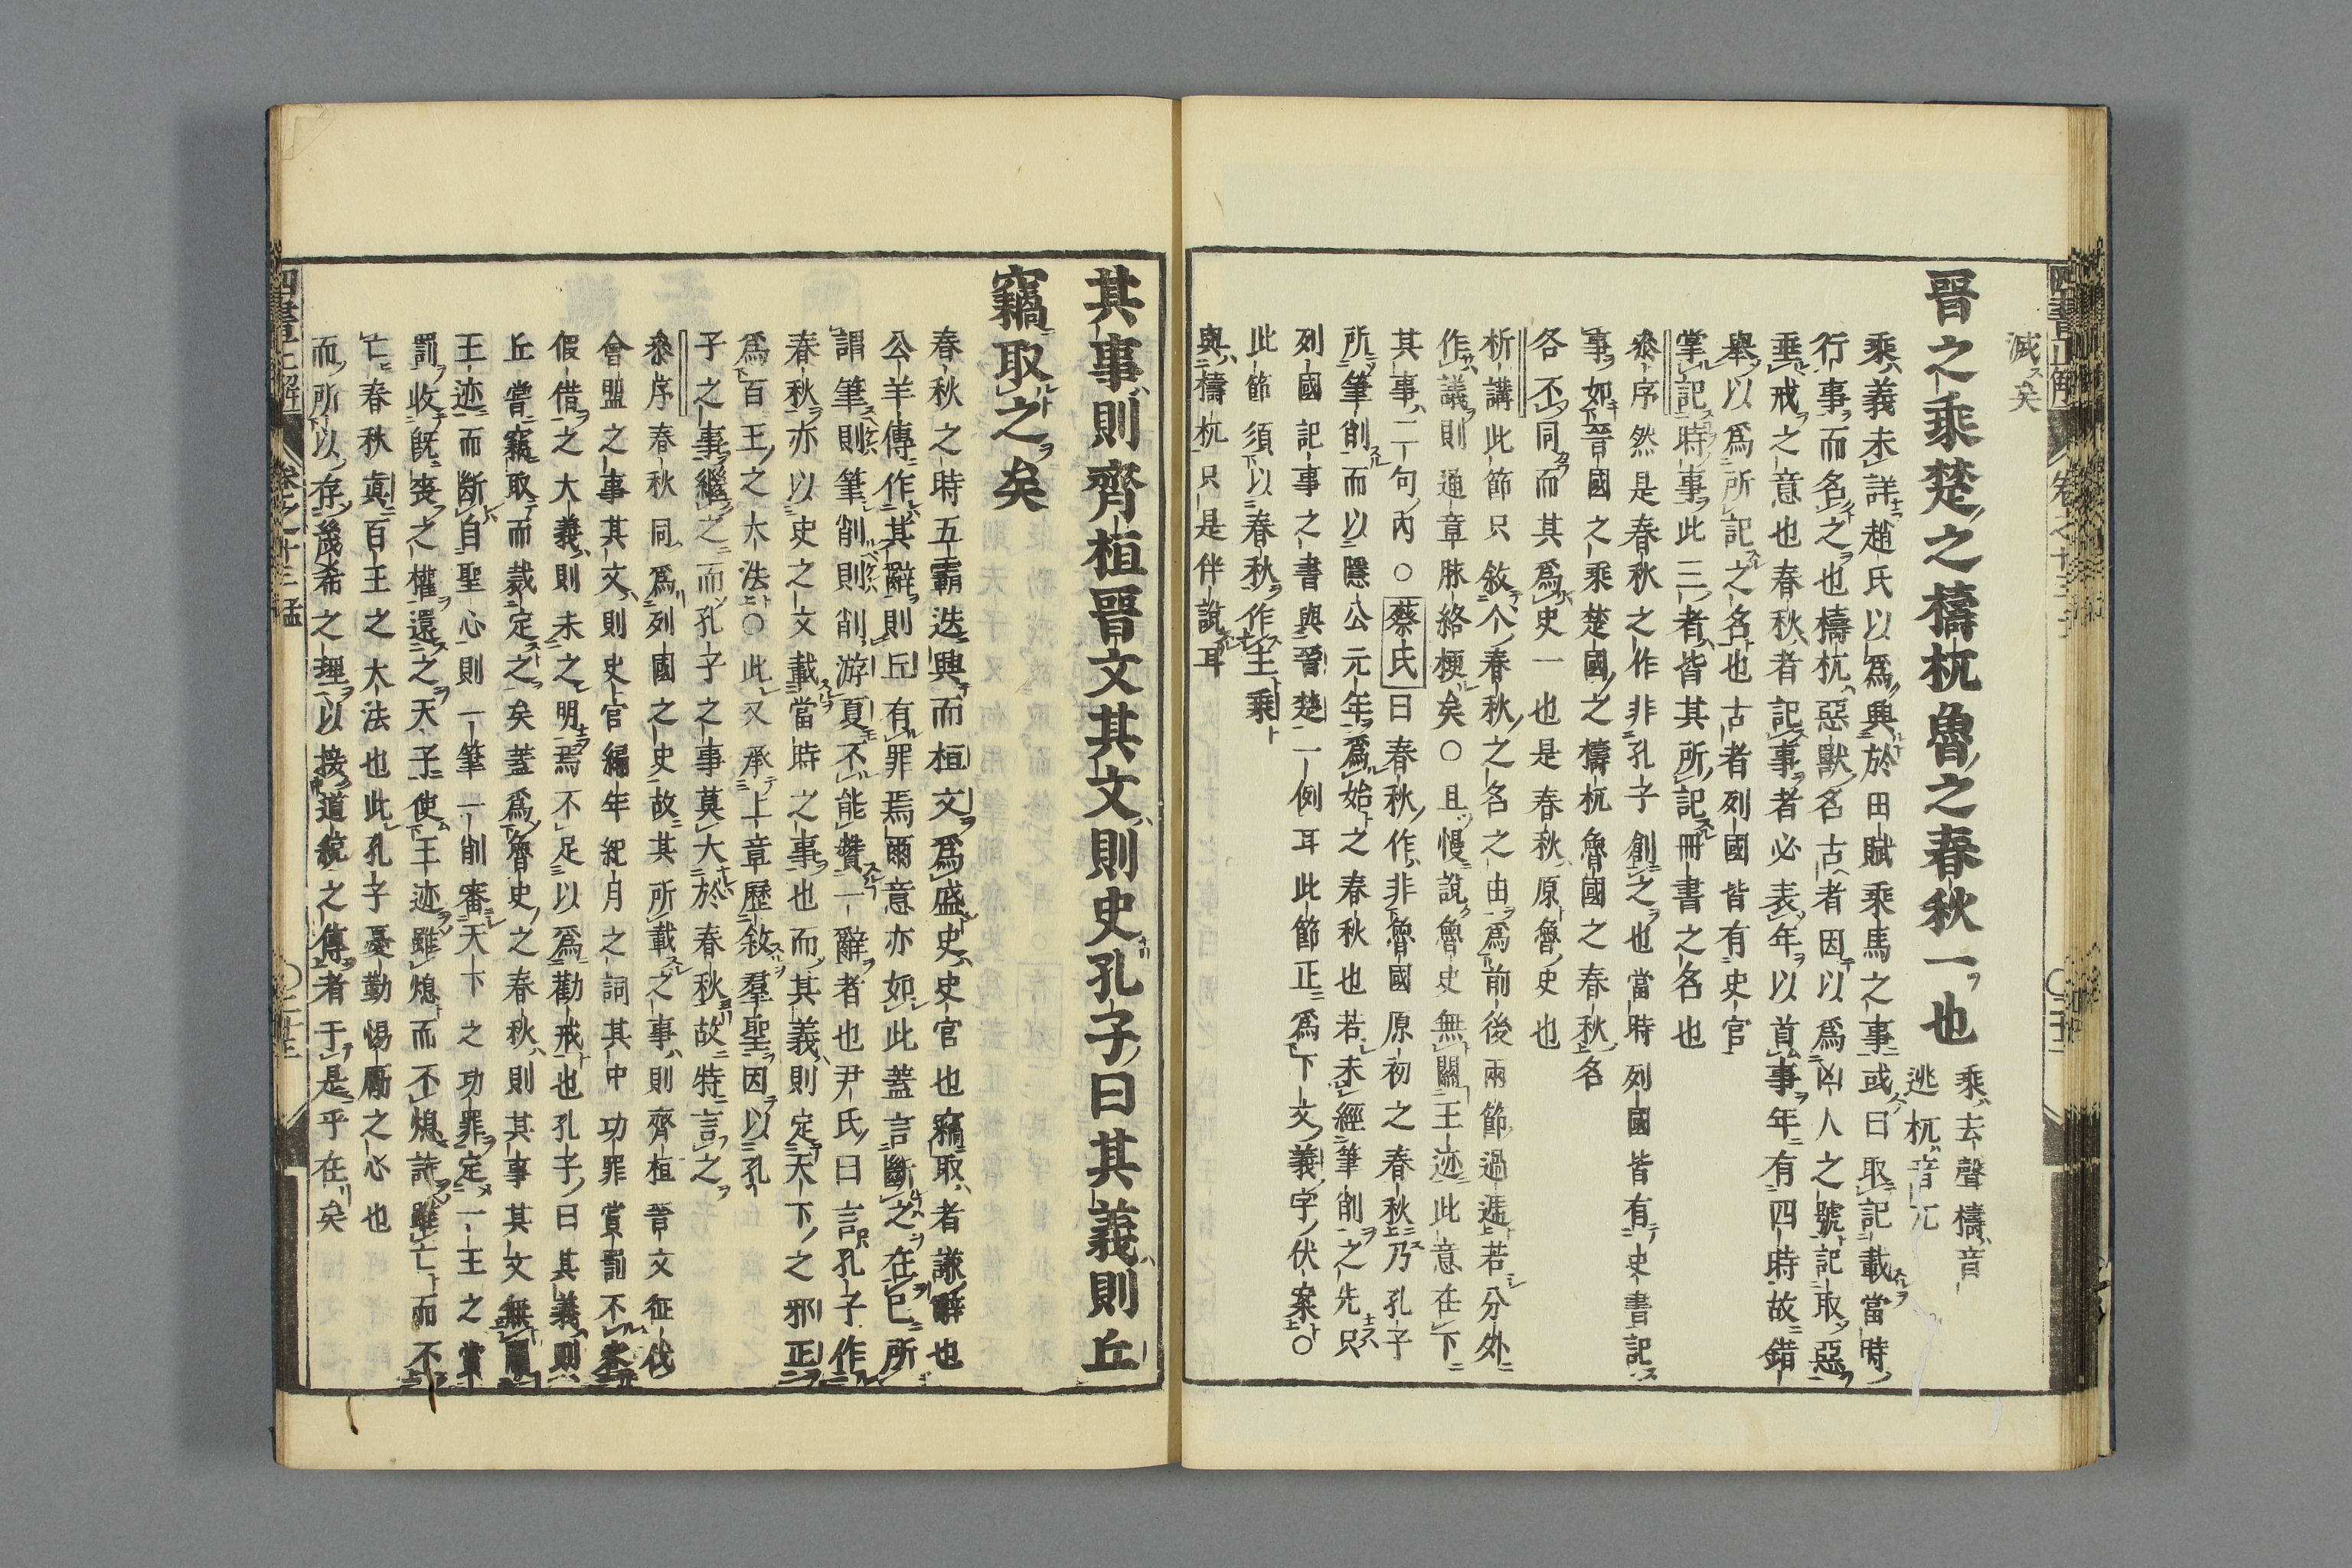 滅矣
晉之乘楚之檮杌魯之春秋一也
乘去聲檮音
逃杌音兀
乘義未詳趙氏以爲興於田賦乘馬之事或曰取記載當時
行事而名之也檮杌惡獸名古者因以爲凶人之號記取惡
垂戒之意也春秋者記事者必表年以首事年有四時故錯
舉以爲所記之名也古者列國皆有史官
掌記時事此三者皆其所記冊書之名也
叅序然是春秋之作非孔子創之也當時列國皆有史書記
事如晉國之乘楚國之檮杌魯國之春秋名
各不同而其爲史一也是春秋原魯史也
析講此節只敘个春秋之名之由爲前後兩節過遞若分外
作議則通章脉絡梗矣○且慢說魯史無關王迹此意在下
其事二句內○蔡氏曰春秋作非魯國原初之春秋乃孔子
所筆削而以隱公元年爲始之春秋也若未經筆削之先只
列國記事之書與晉楚一例耳此節正爲下文義字伏案○
此節須以春秋作主乘
與檮杌只是伴說耳
其事則齊桓晉文其文則史孔子曰其義則丘
竊取之矣
春秋之時五霸迭興而桓文爲盛史史官也竊取者謙辭也
公羊傳作其辭則丘有罪焉爾意亦如此蓋言斷之在已所
謂筆則筆削則削游夏不能贊一辭者也尹氏曰言孔子作
春秋亦以史之文載當時之事也而其義則定天下之邪正
爲百王之大法○此又承上章歷敘羣聖因以孔
子之事繼之而孔子之事莫大於春秋故特言之
叅序春秋同爲列國之史故其所載之事則齊桓晉文征伐
會盟之事其文則史官編年紀月之詞其中功罪賞罰不
假借之大義則未之明焉不足以爲勸戒也孔子曰其義則
丘嘗竊取而裁定之矣蓋爲魯史之春秋則其事其文無
王迹而斷自聖心則一筆一削審天下之功罪定一王之賞
罰收旣喪之權還之天子使王迹雖熄而不熄詩雖亡而不
亡春秋真百王之大法也此孔子憂勤惕厲之心也
而所以存幾希之理以接道統之傳者于是乎在矣
四書正解
卷之十三 孟